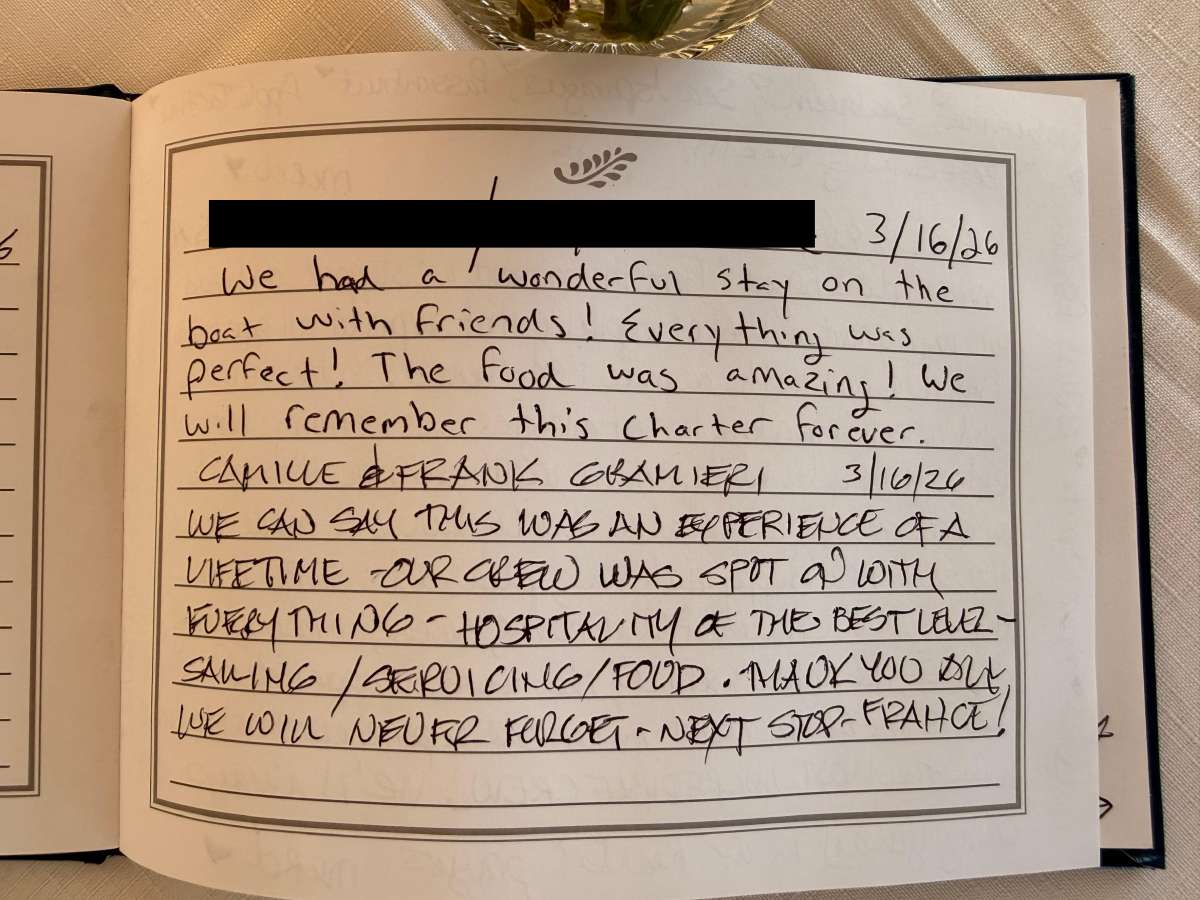 3/16/26
We had a wonderful stay on the
boat with friends! Everything was
perfect! The food was amazing! We
will remember this charter forever.
CAMILLE & FRANK GRAMIERI 3/16/26
WE CAN SAY THIS WAS AN EXPERIENCE OF A
LIFETIME - OUR CREW WAS SPOT ON WITH
EVERYTHING - HOSPITALITY OF THE BEST LEVEL -
SAILING / SERVICING / FOOD. THANK YOU ALL
WE WILL NEVER FORGET - NEXT STOP - FRANCE!